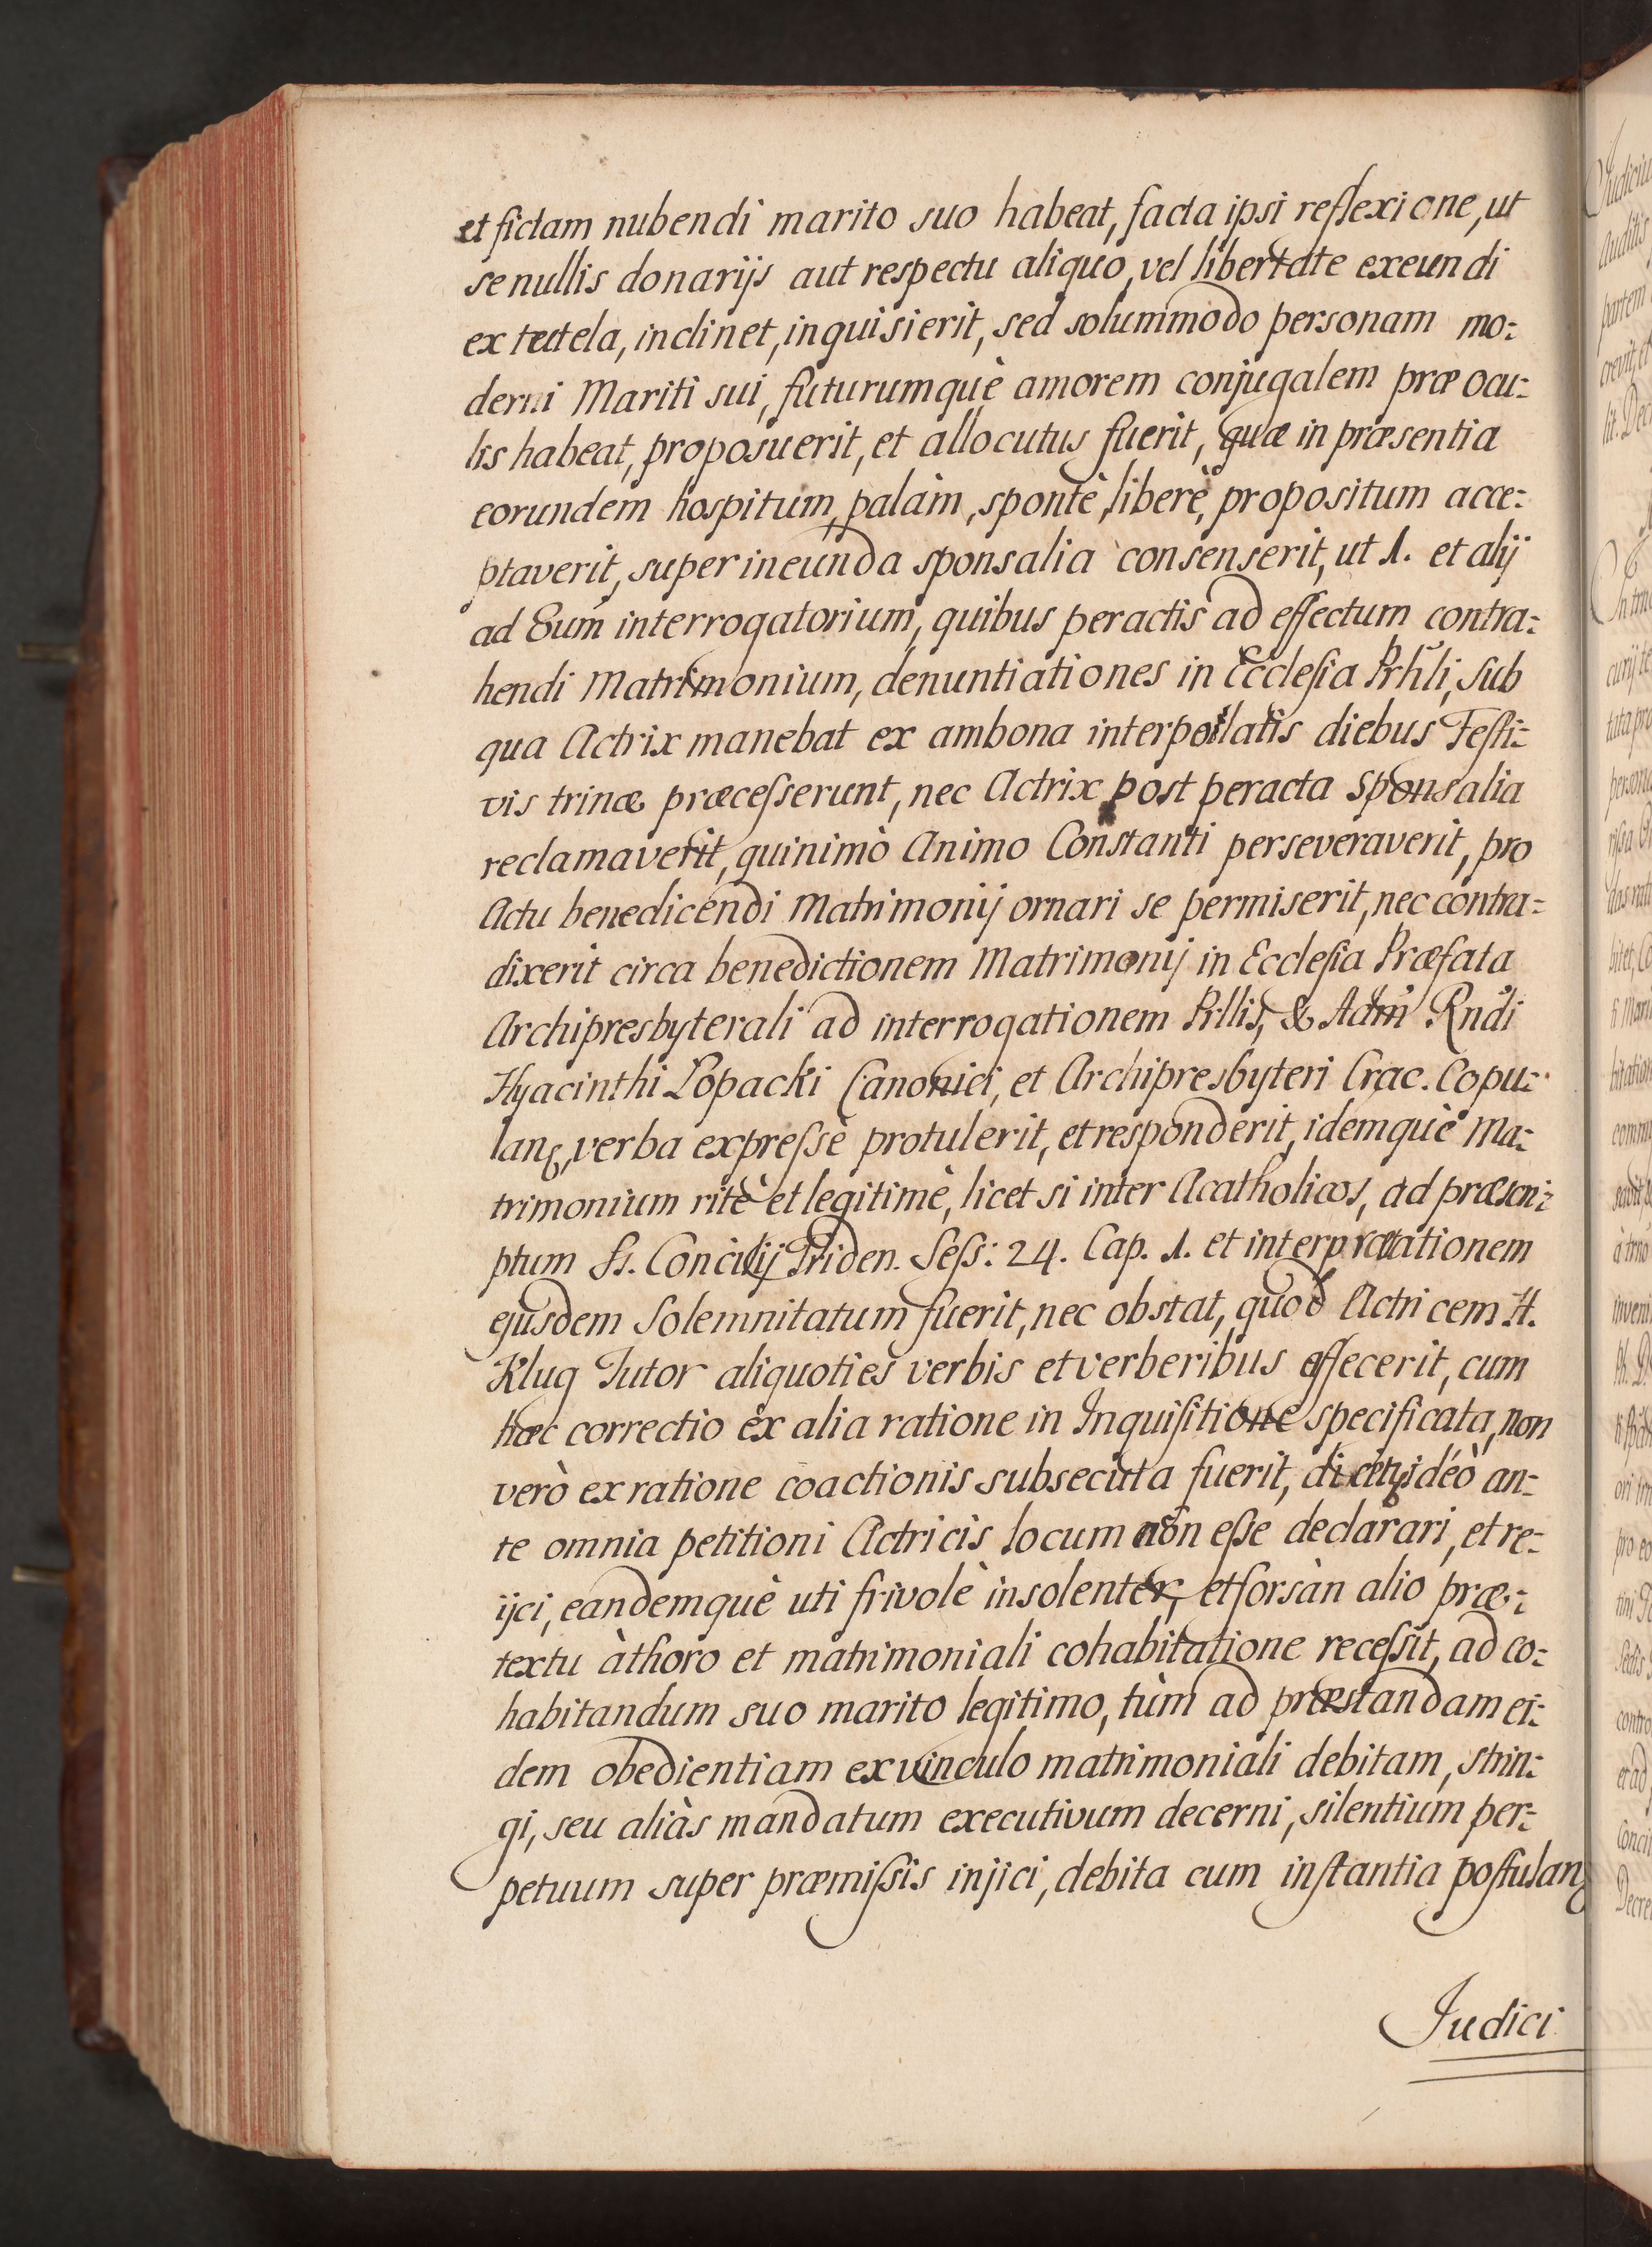 et fictam nubendi marito suo habeat, facta ipsi reflexione, ut
se nullis donarijs aut respectu aliquo, vel libertate exeundi
ex tutela, inclinet, inquisierit, sed solummodo personam mo:
derni Mariti sui, futurumquè amorem conjugalem præ ocu:
lis habeat, proposuerit, et allocutus fuerit, quæ in præsentia
eorundem hospitum, palàm, spontè, liberè, propositum acce:
ptaverit, super ineunda sponsalia consenserit, ut 1. et alij
ad 8um interrogatorium, quibus peractis ad effectum contra:
hendi Matrimonium, denuntiationes in Ecclesia Prhli, sub
qua Actrix manebat ex ambona interpollatis diebus Festi:
vis trinæ præcesserunt, nec Actrix post peracta Sponsalia
reclamaverit, quinimò Animo Constanti perseveraverit, pro
Actu benedicendi Matrimonij ornari se permiserit, nec contra:
dixerit circa benedictionem Matrimonij in Ecclesia Præfata
Archipresbyterali ad interrogationem Prllis, & Adm Rndi
Hyacinthi Łopacki Canonici, et Archipresbyteri Crac. Copu:
lanς, verba expressè protulerit, et responderit, idemquè Ma:
trimonium ritè et legitimè, licet si inter Acatholicos, ad præscri:
ptum Ss. Concilij Triden. Sess: 24. Cap. 1. et interprætationem
ejusdem Solemnitatum fuerit, nec obstat, quod Actricem H.
Klug Tutor aliquoties verbis et verberibus affecerit, cum
hæc correctio ex alia ratione in Inquisitione specificata, non
verò ex ratione coactionis subsecuta fuerit, ideò an:
te omnia petitioni Actricis locum non esse declarari, et re:
ijci, eandemquè uti frivolè insolenter, et forsàn alio præ:
textu à thoro et matrimoniali cohabitatione recessit, ad co:
habitandum suo marito legitimo, tùm ad præstandam ei:
dem obedientiam ex vinculo matrimoniali debitam, strin:
gi, seu aliàs mandatum executivum decerni, silentium per:
petuum super præmissis injici, debita cum instantia postulanς
Judici